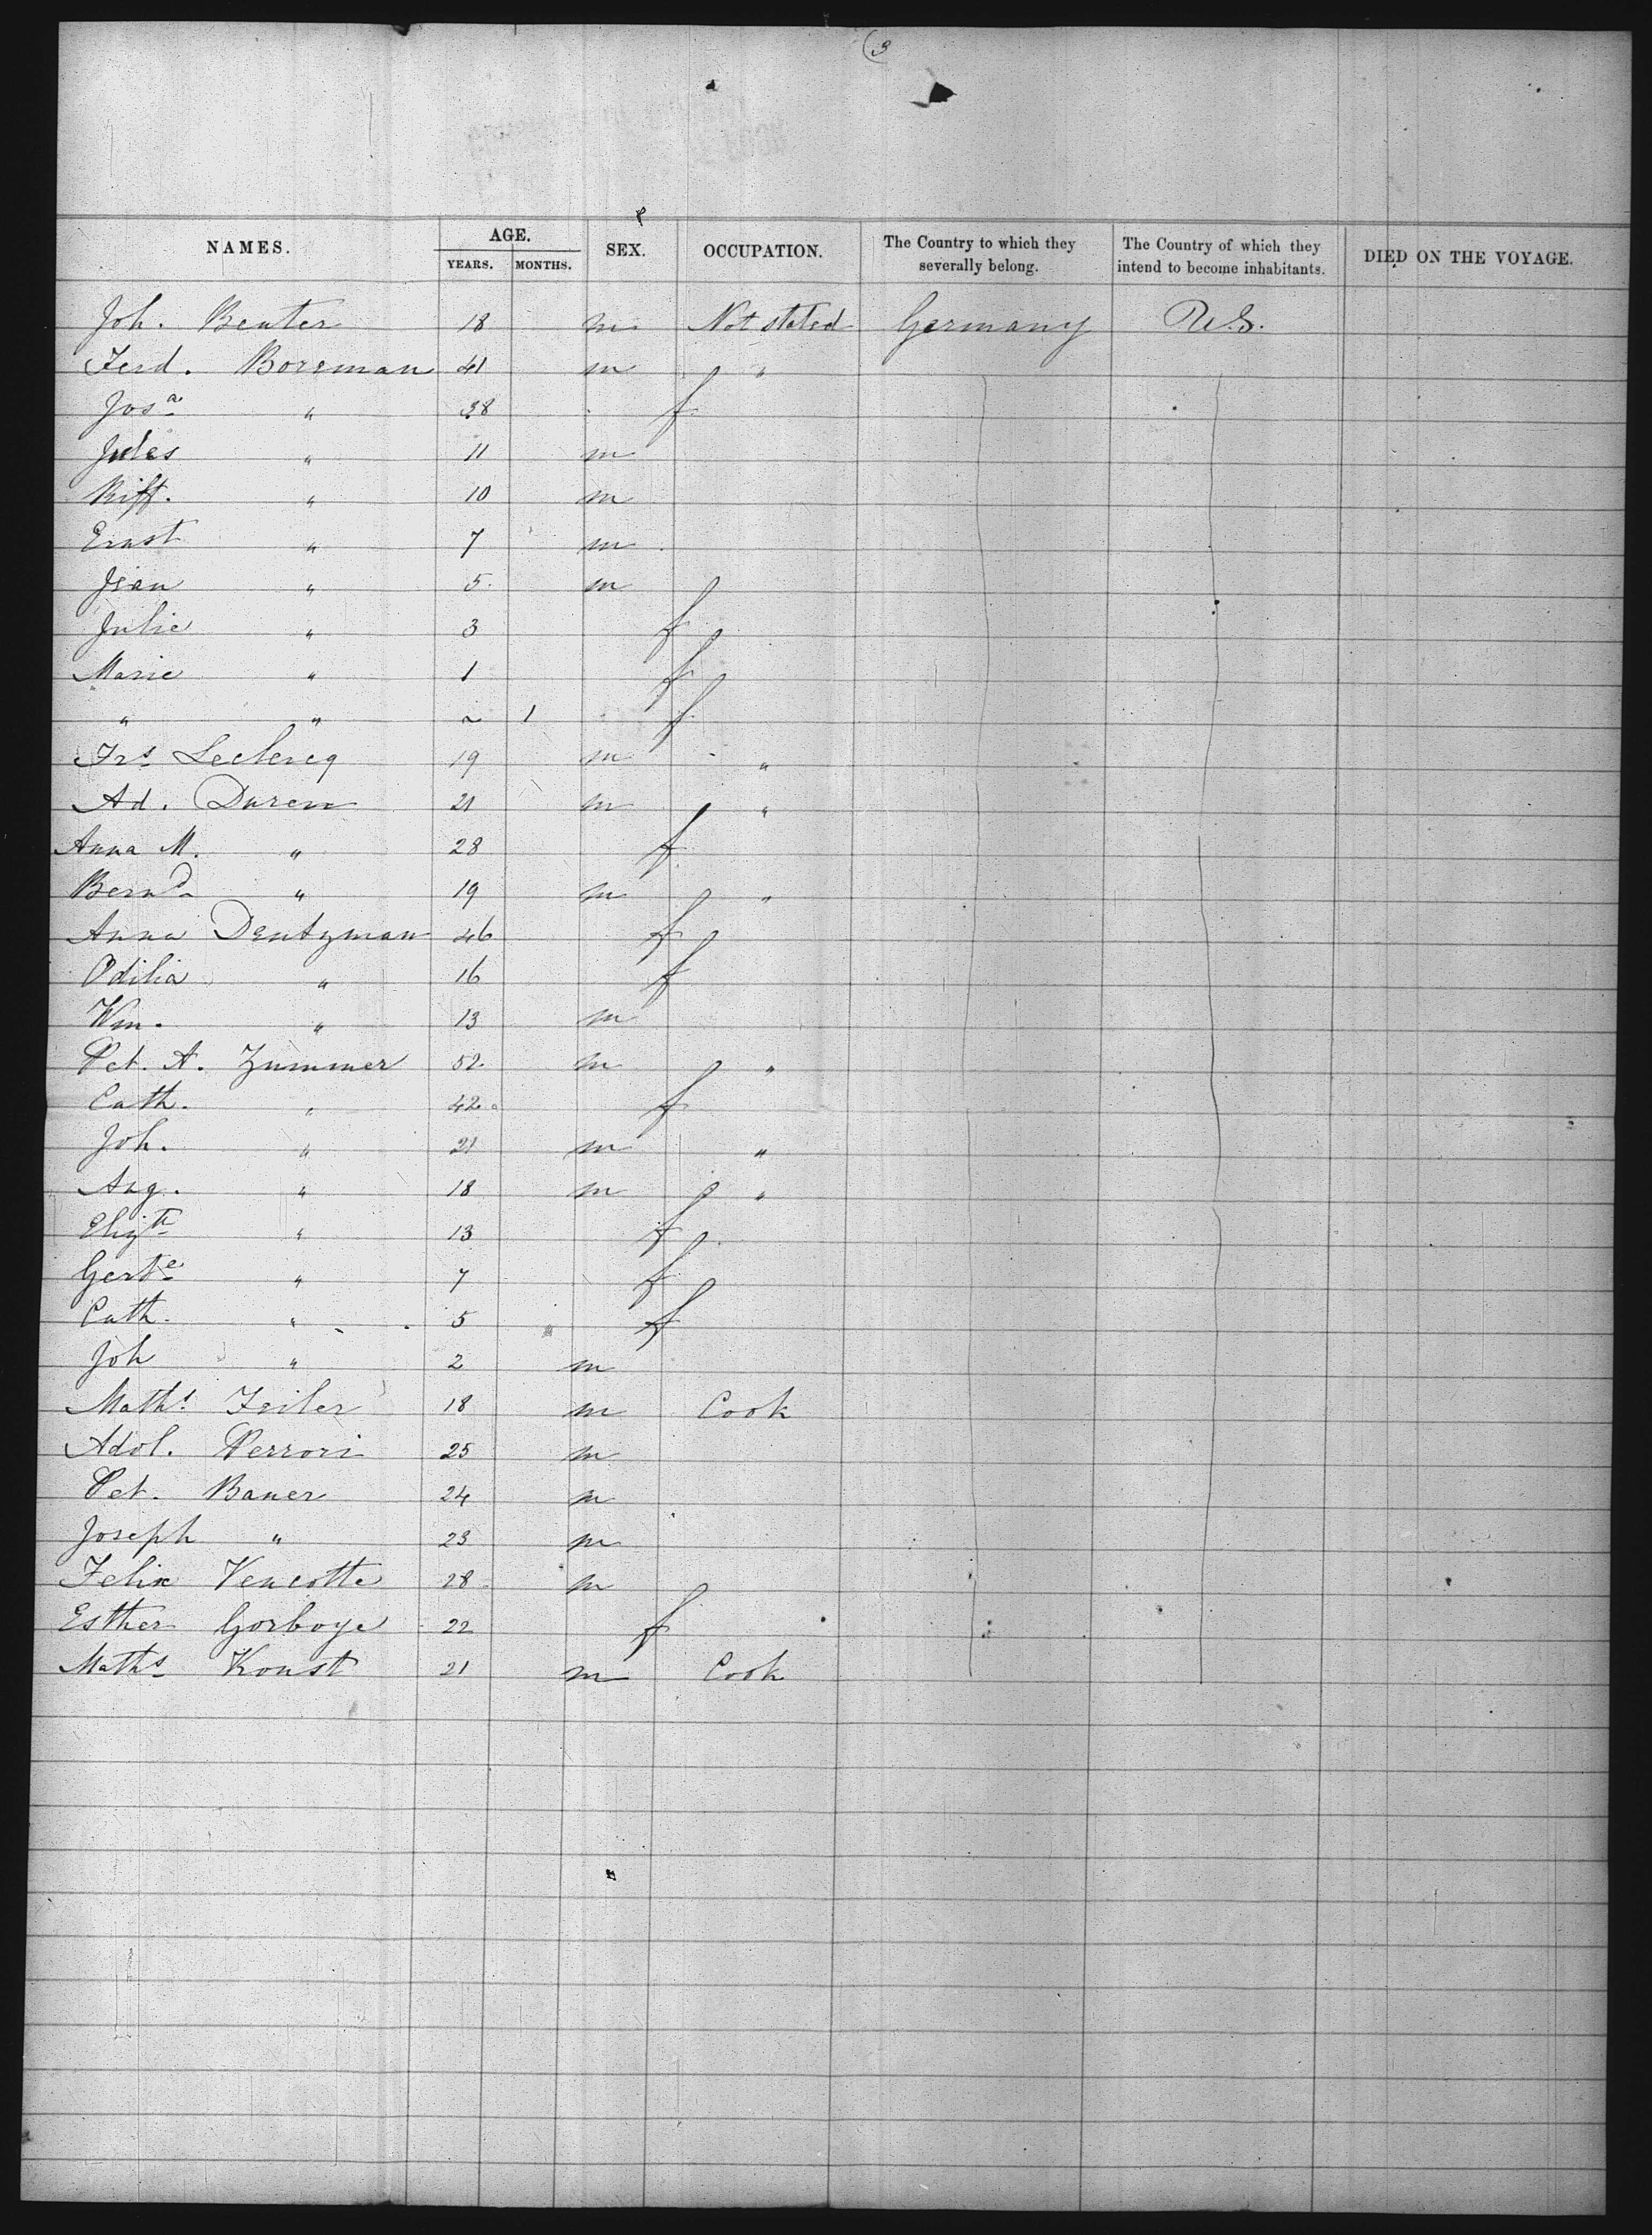 (3
NAMES. AGE. YEARS. MONTHS. SEX. OCCUPATION. The Country to which they severally belong. The Country of which they intend to become inhabitants. DIED ON THE VOYAGE.
Joh. Benter 18 m Not stated Germany U.S.
Ferd. Boreman 41 m "
Josa " 38 f
Jules " 11 m
" 10 m
Ernst " 7 m
Jean " 5 m
Julie " 3 f
Marie " 1 f
" " ~ 1 f
Frs Leclercq 19 m "
Ad. Duren 21 m "
Anna M. " 28 f
Bernd " 19 m "
Anna Dentzman 46 f
Odilia " 16 f
Wm. " 13 m
Pet. A. Zummer 52 m "
Cath. " 42 f
Joh. " 21 m "
Aug. " 18 m "
Elizth " 13 f
Gerte " 7 f
Cath. " 5 f
Joh " 2 m
Maths Feiler 18 m Cook
Adol. Perrori 25 m
Pet. Bauer 24 m
Joseph " 23 m
Felix Vencotte 28 m
Esther Gorboye 22 f
Maths Konst 21 m Cook